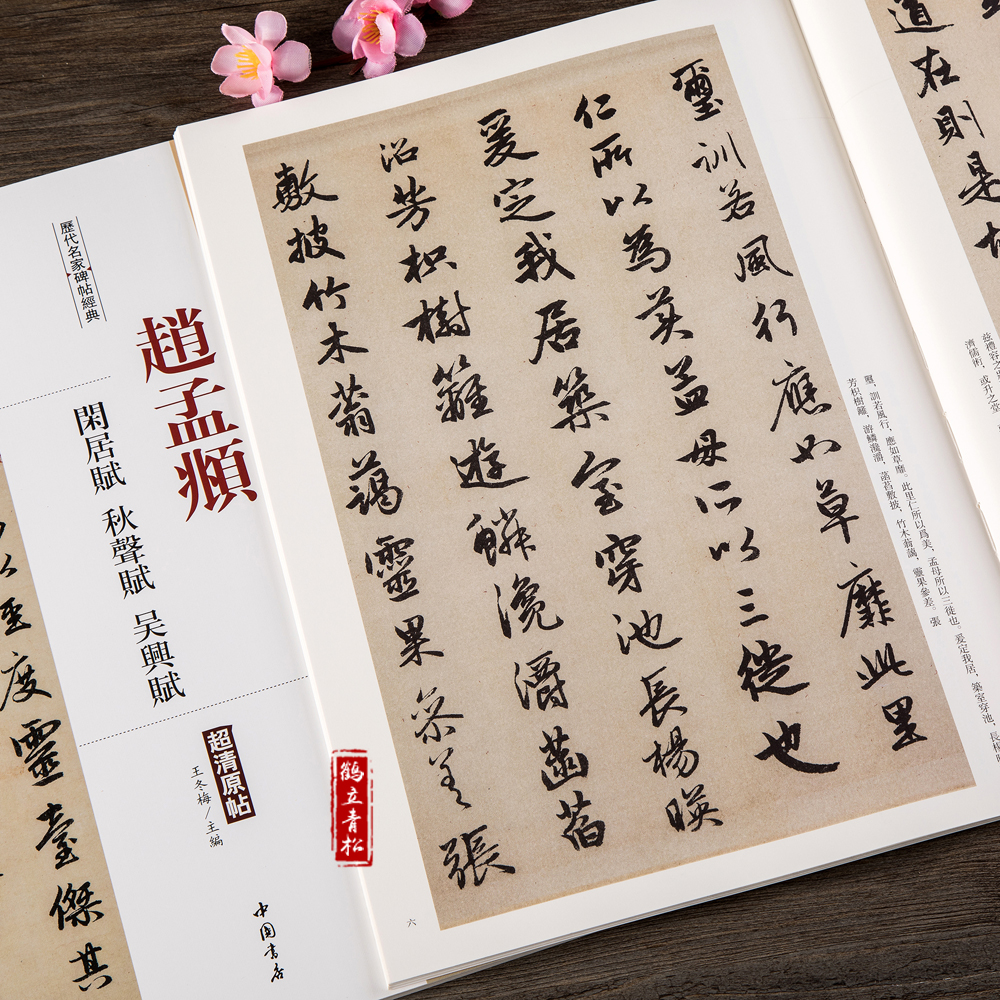 歷代名家碑帖經典
趙孟頫
閑居賦 秋聲賦 吴興賦
超清原帖
王冬梅/主編
中國書店
度靈臺傑其
鶴立青松
道在則是
濟儒術，或升之堂
璽訓若風行應如草靡此里
仁所以為美孟母所以三徙也
爰定我居築室穿池長楊暎
沼芳枳樹籬遊鱗瀺灂菡萏
敷披竹木蓊藹靈果參差張
璽，訓若風行，應如草靡。此里仁所以爲美，孟母所以三徙也。爰定我居，築室穿池，長楊
芳枳樹籬，游鱗瀺灂，菡萏敷披，竹木蓊藹，靈果參差。張
六